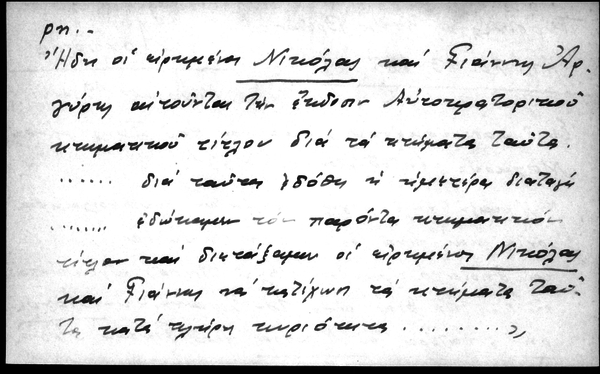 ρη.-
Ἤδη οἱ εἰρημένοι Νικόλας καί Γιάννης Ἀρ-
γύρης αἰτοῦνται τήν ἔκδοσιν Αὐτοκρατορικοῦ
κτηματικοῦ τίτλου διά τά κτήματα ταῦτα.
...... διά ταῦτα ἐδόθη ἡ ἡμετέρα διαταγή
....... ἐδώκαμεν τόν παρόντα κτηματικόν
τίτλον καί διετάξαμεν οἱ εἰρημένοι Νικόλας
καί Γιάννης νά κατέχωσι τά κτήματα ταῦ-
τα κατά πλήρη κυριότητα ........."